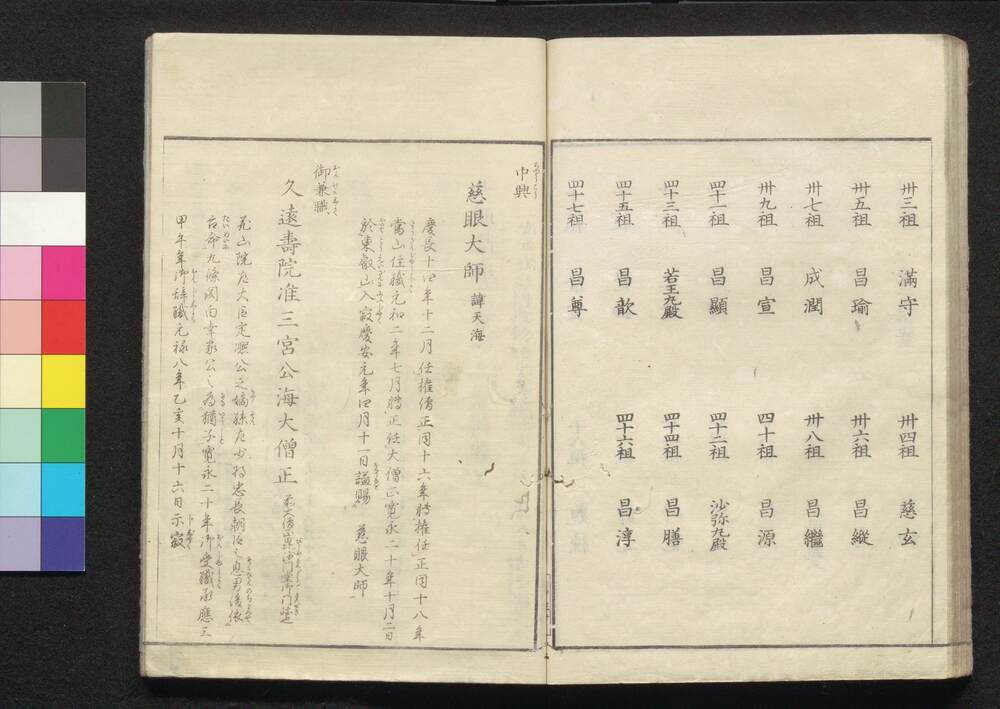 卅三祖 滿守 卅四祖 慈玄
卅五祖 昌瑜 卅六祖 昌縱
卅七祖 成潤 卅八祖 昌繼
卅九祖 昌宣 四十祖 昌源
四十一祖 昌顯 四十二祖 沙弥九殿
四十三祖 若王九殿 四十四祖 昌膳
四十五祖 昌歆 四十六祖 昌淳
四十七祖 昌尊
中興
慈眼大師 諱天海
慶長十四年十二月任権僧正同十六年轉権任正同十八年
當山住職元和二年七月轉正任大僧正寛永二十年十月二日
於東叡山入寂慶安元年四月十一日謚賜 慈眼大師
御兼職
久遠壽院准三宮公海大僧正
花山院左大臣定凞公之嫡孫左少将忠長朝臣之息男後依
台命九條関白幸家公之為猶子寛永二十年御受職承應三
甲午年御辞職元禄八年乙亥十月十六日示寂